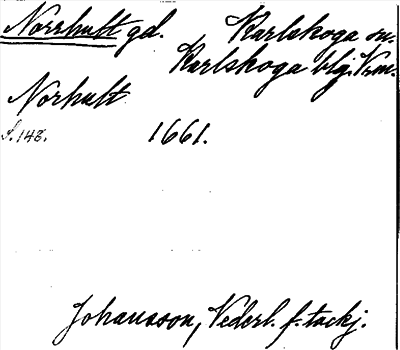 Norrhult gd. Karlskoga sn.
Karlskoga blg. Vrm.
Norhult
s. 148. 1661.
Johansson, Vederl. f. tackj.